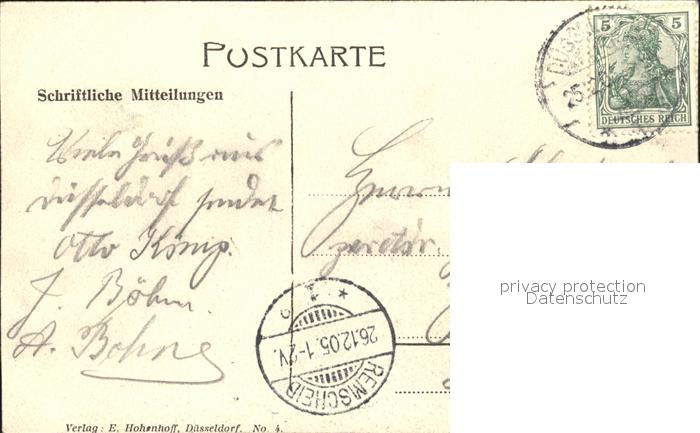 POSTKARTE
5 5
DEUTSCHES REICH
Schriftliche Mitteilungen
Viele Grüß aus
Düsseldorf sendet
Otto Kömp.
J. Böhm
A. Bohne
Herrn
26.12.05. 1-2V.
REMSCHEID
privacy protection
Datenschutz
Verlag: E. Hohenhoff, Düsseldorf. No. 4.